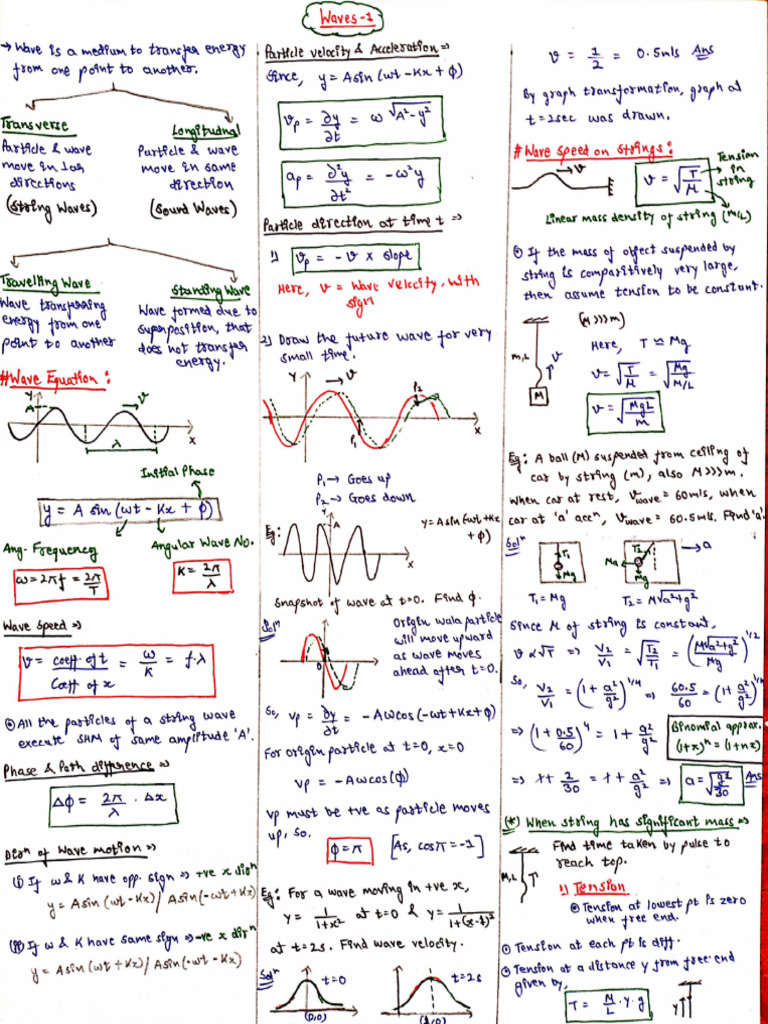 Waves-1
→ Wave is a medium to transfer energy
from one point to another.
Transverse
Particle & wave
move in ⊥ar
directions
(String Waves)
Longitudnal
Particle & wave
move in same
direction
(Sound Waves)
Travelling Wave
Wave transferring
energy from one
point to another
Standing Wave
Wave formed due to
superposition, that
does not transfer
energy.
#Wave Equation:
y
A
v
x
λ
Initial Phase
y = A sin (ωt - Kx + ϕ)
Ang. Frequency
ω = 2πf = 2π/T
Angular Wave No.
K = 2π/λ
Wave Speed ⇒
v = coeff. of t / Coeff of x = ω/K = f.λ
⊙ All the particles of a string wave
execute SHM of same amplitude 'A'.
Phase & Path difference ⇒
Δϕ = 2π/λ . Δx
Dirn of Wave motion ⇒
(i) If ω & K have opp. sign ⇒ +ve x dirn
y = A sin (ωt - Kx) / A sin (-ωt + Kx)
(ii) If ω & K have same sign ⇒ -ve x dirn
y = A sin (ωt + Kx) / A sin (-ωt - Kx)
Particle velocity & Acceleration ⇒
Since, y = A sin (ωt - Kx + ϕ)
vp = ∂y/∂t = ω √A² - y²
ap = ∂²y/∂t² = -ω²y
Particle direction at time t ⇒
1) vp = - v x slope
Here, v = Wave velocity. with
sign
2) Draw the future wave for very
small time.
y
v
P2
P1
x
P1 → Goes up
P2 → Goes down
Eg:
y
A
x
y = A sin (ωt + Kx
+ ϕ)
Snapshot of wave at t=0. Find ϕ.
Soln
O
Origin wala particle
will move upward
as wave moves
ahead after t=0.
So, vp = ∂y/∂t = - Aω cos (-ωt + Kx + ϕ)
For origin particle at t=0, x=0
vp = - Aω cos (ϕ)
vp must be +ve as particle moves
up, so.
ϕ = π [As, cos π = -1]
Eg: For a wave moving in +ve x,
y = 1/1+x² at t=0 & y = 1/1+(x-1)²
at t=2s. Find wave velocity.
Soln
t=0
(0,0)
t=2s
(1,0)
v = 1/2 = 0.5 m/s Ans
By graph transformation, graph at
t=2sec was drawn.
#Wave speed on strings:
v
v = √T/μ
Tension
in
string
Linear mass density of string (m/L)
⊙ If the mass of object suspended by
string is comparitively very large,
then assume tension to be constant.
(M>>>m)
m,L
v
M
Here, T ≃ Mg
v = √T/μ = √Mg/m/L
v = √MgL/m
Eg: A ball (M) suspended from ceiling of
car by string (m), also M>>>m.
When car at rest, vwave = 60m/s, when
car at 'a' accn, vwave = 60.5m/s. Find 'a'.
Soln
T1
Mg
T1 = Mg
T2
Ma
Mg
→ a
T2 = M√a²+g²
Since μ of string is constant,
v ∝ √T ⇒ v2/v1 = √T2/T1 = (M√a²+g²/Mg)^1/2
So, v2/v1 = (1 + a²/g²)^1/4 ⇒ 60.5/60 = (1 + a²/g²)^1/4
⇒ (1 + 0.5/60)^4 = 1 + a²/g²
Binomial approx.
(1+x)^n = (1+nx)
⇒ 1 + 2/60 = 1 + a²/g² ⇒ a = √g²/30 Ans
(*) When string has significant mass ⇒
M,L
T
Find time taken by pulse to
reach top.
1) Tension
⊙ Tension at lowest pt is zero
when free end.
⊙ Tension at each pt is diff.
⊙ Tension at a distance y from free end
given by,
T = M/L . y . g
y